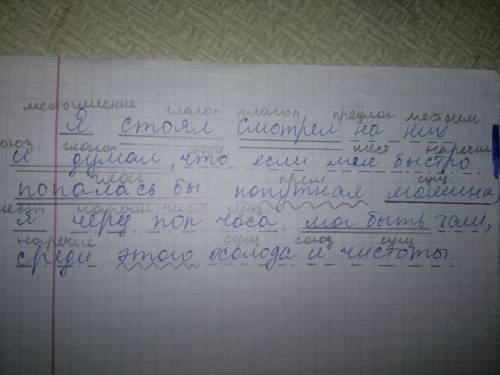 местоимение глагол глагол предлог местоим
Я стоял смотрел на них
союз глагол союз мест наречие
и думал, что если мне быстро
глаг прил сущ
попалась бы попутная машина,
мест наречи числ
я через пол часа мог быть там,
наречие сущ союз сущ
среди этого холода и чистоты.